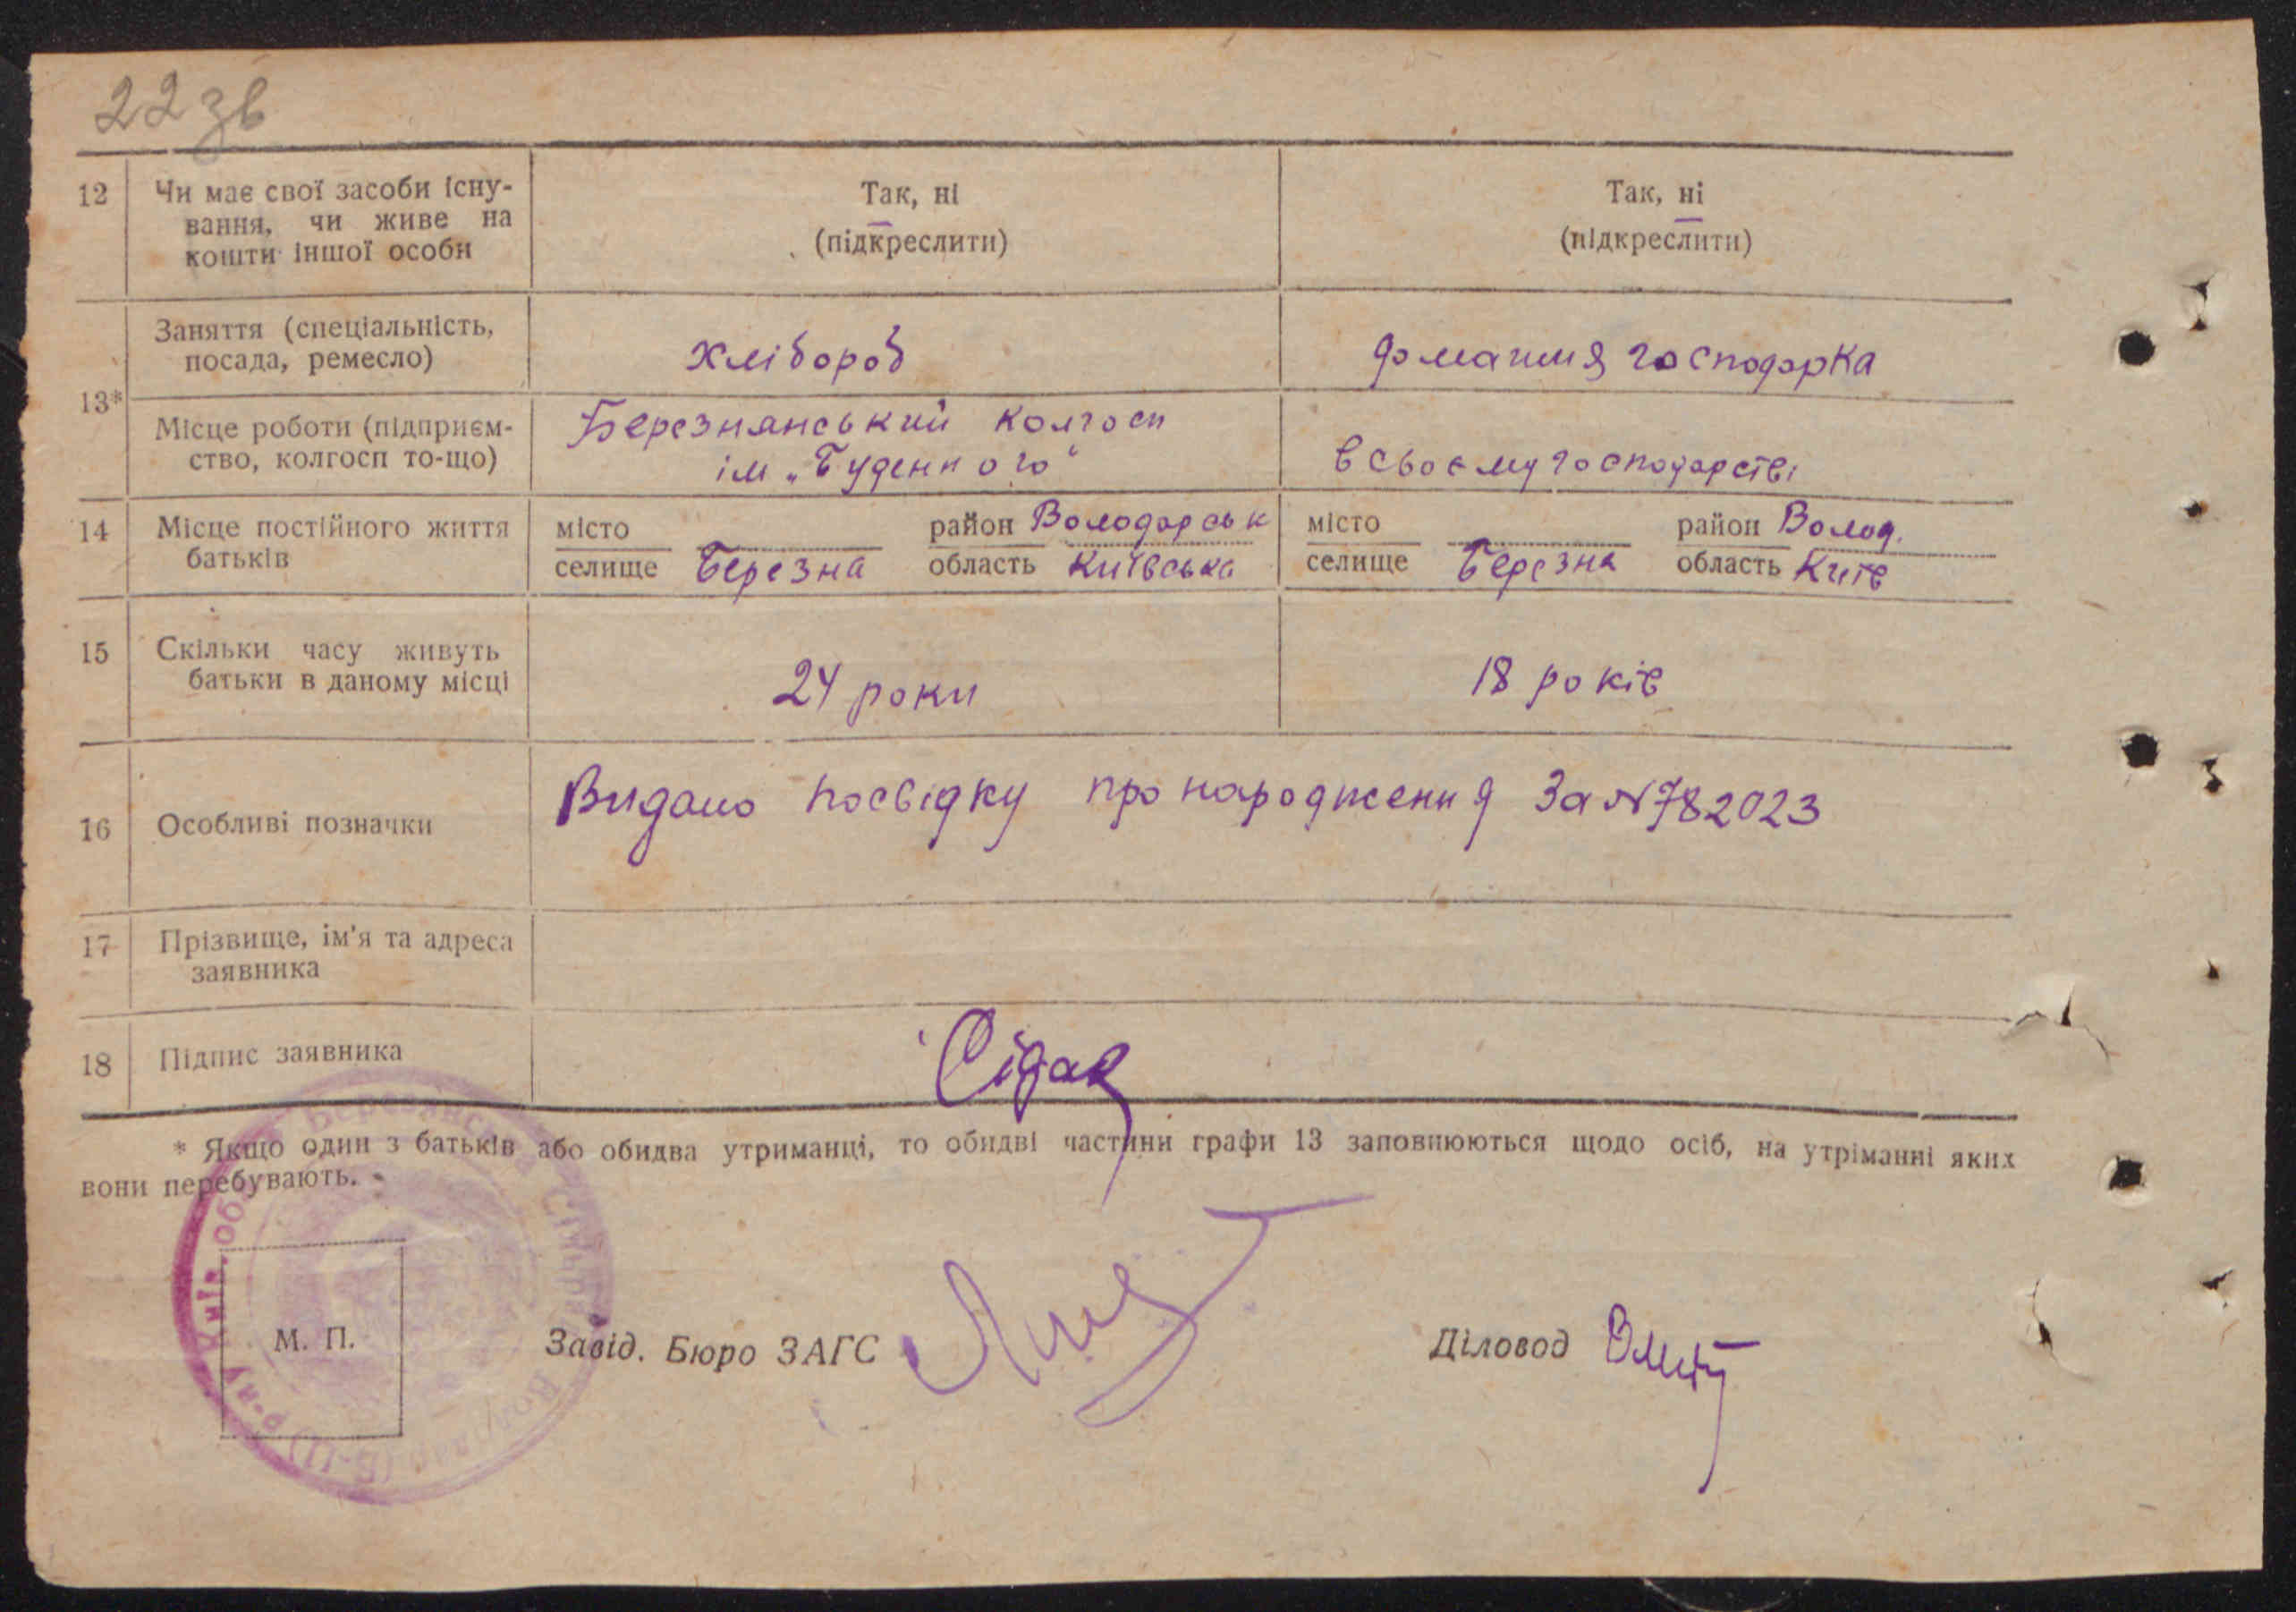 22 зв
12 Чи має свої засоби існу- Так, ні Так, ні
вання, чи живе на
кошти іншої особи (підкреслити) (підкреслити)
13* Заняття (спеціальність,
посада, ремесло) Хлібороб домашня господарка
Місце роботи (підприєм- Березнянський колгосп
ство, колгосп то-що) ім „Буденного“ в своєму господарстві
14 Місце постійного життя місто район Володарськ місто район Волод.
батьків селище Березна область Київська селище Березна область Київ
15 Скільки часу живуть
батьки в даному місці 24 роки 18 років
16 Особливі позначки Видано посвідку про народження За № 782023
17 Прізвище, ім'я та адреса
заявника
18 Підпис заявника Сідак
* Якщо один з батьків або обидва утриманці, то обидві частини графи 13 заповнюються щодо осіб, на утріманні яких
вони перебувають.
М. П. Завід. Бюро ЗАГС Діловод